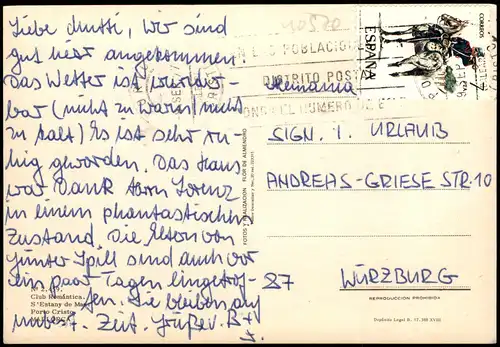 Liebe Mutti, wir sind
gut hier angekommen.
Das Wetter ist wunder-
bar (nicht zu warm/nicht
zu kalt) Es ist sehr ru-
hig geworden. Das Haus
war Dank Lorenz
in einem phantastischen
Zustand. Die Eltern von
Günter Spill sind auch vor
ein paar Tagen eingetrof-
fen. Sie bleiben auf
unbest. Zeit. Grüße v. B+
Nº 2.
Club Romántica.
S'Estany de
Porto Cristo
MALLORCA
FOTOS Y REALIZACION FLOR DE ALMENDRO
40520
POBLACIO
DISTRITO POSTA
EL NUMERO DE
CORREOS
ESPAÑA
7
Alemania
SIGN. I. URLAUB
ANDREAS-GRIESE STR. 10
87 WÜRZBURG
REPRODUCCION PROHIBIDA
Depósito Legal B. 17.388 XVIII